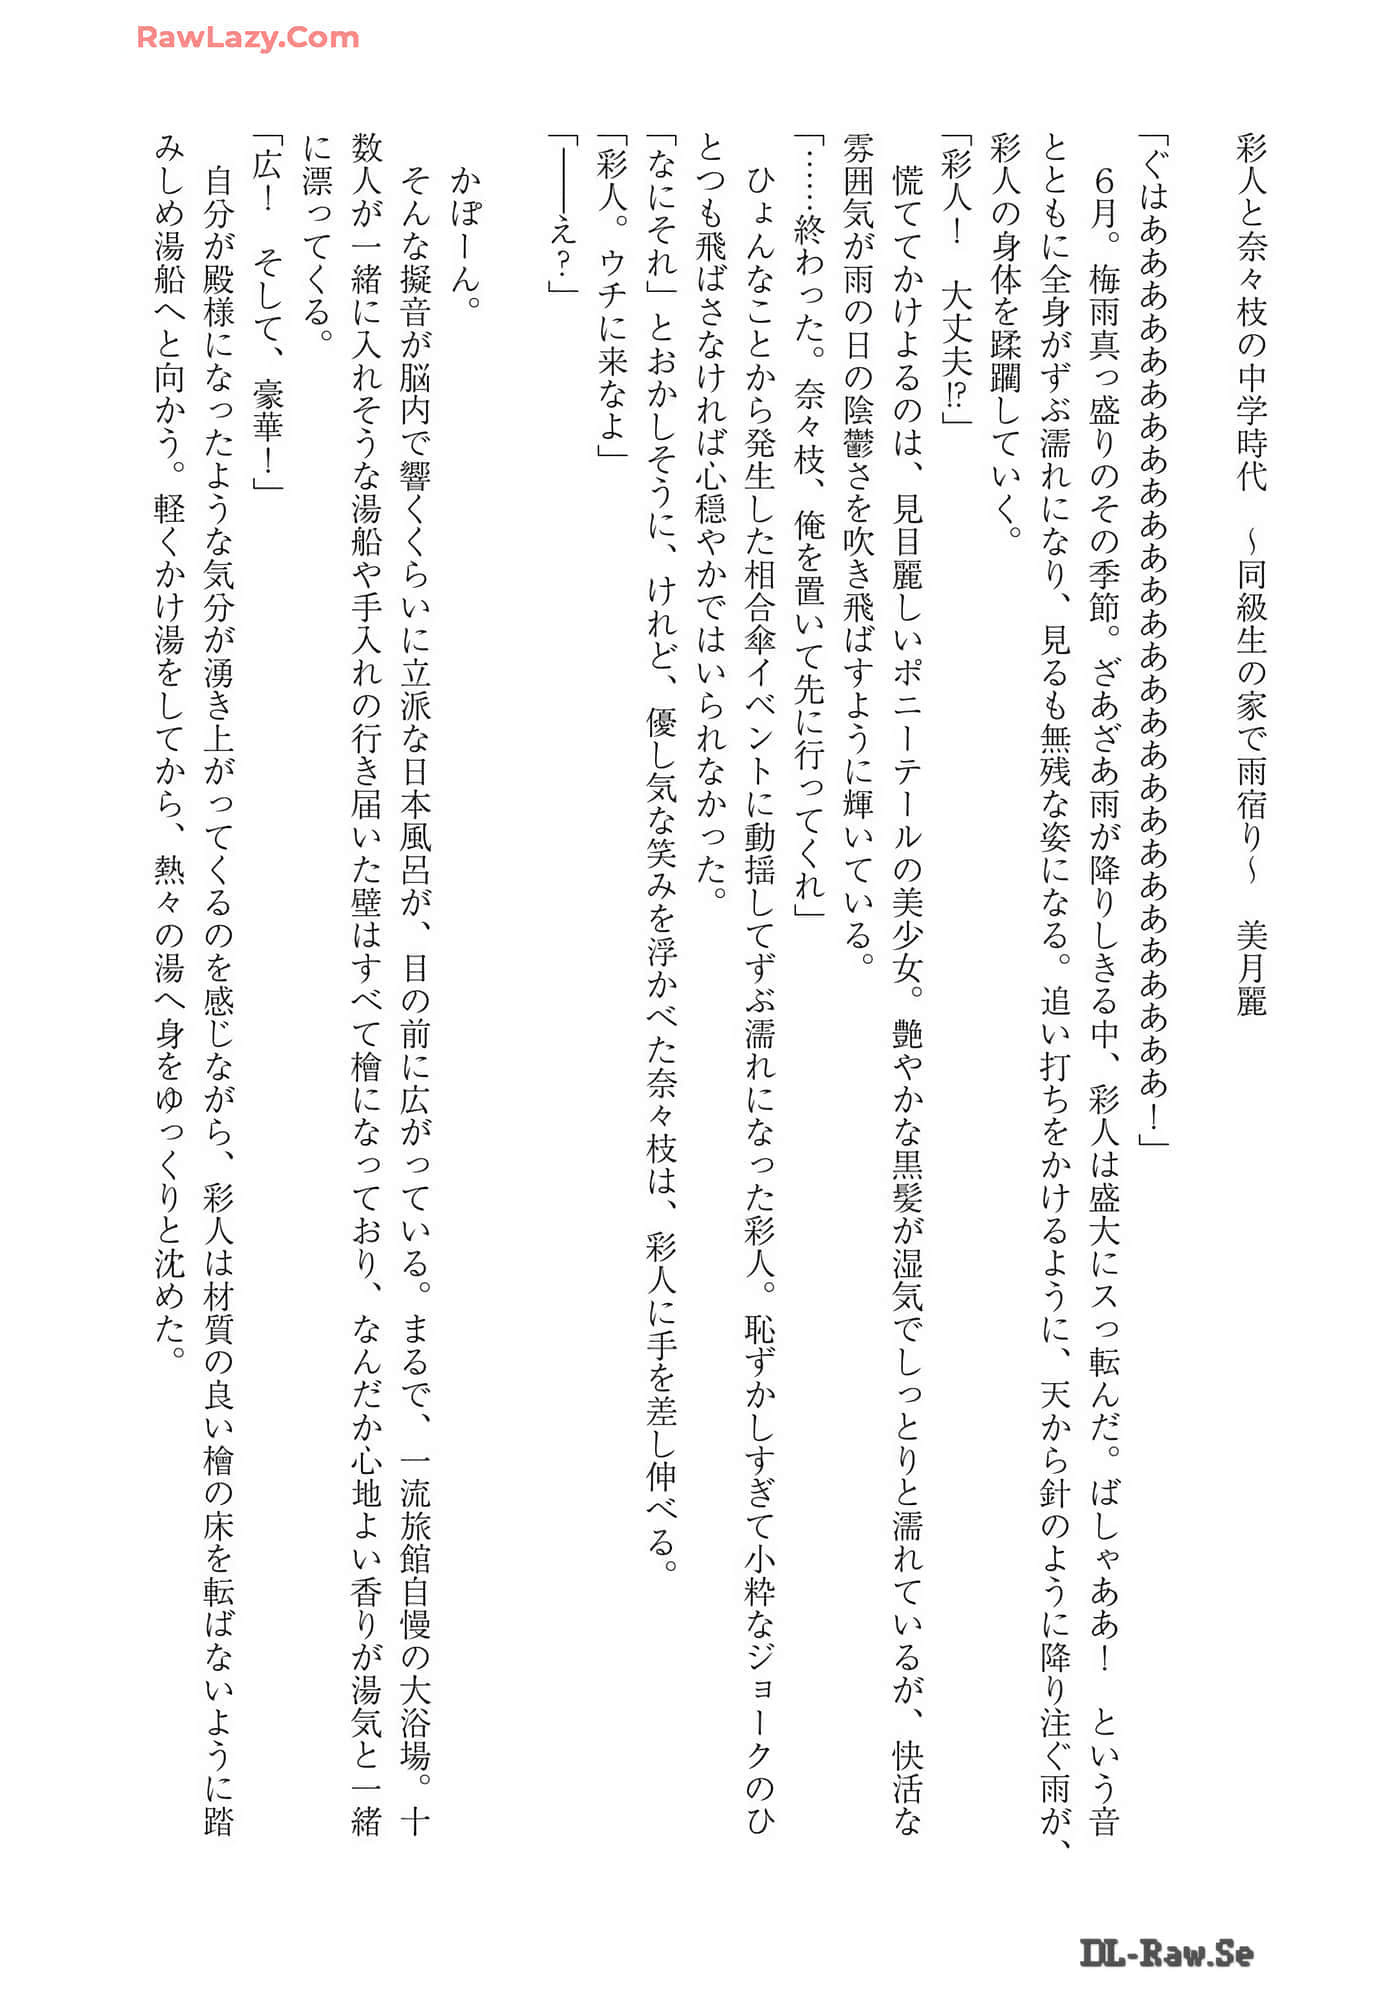 RawLazy.Com
彩人と奈々枝の中学時代　～同級生の家で雨宿り～　美月麗
「ぐはあああああああああああああああああああああああああああ！」
　６月。梅雨真っ盛りのその季節。ざあざあ雨が降りしきる中、彩人は盛大にスっ転んだ。ばしゃああ！　という音
とともに全身がずぶ濡れになり、見るも無残な姿になる。追い打ちをかけるように、天から針のように降り注ぐ雨が、
彩人の身体を蹂躙していく。
「彩人！　大丈夫⁉」
　慌ててかけよるのは、見目麗しいポニーテールの美少女。艶やかな黒髪が湿気でしっとりと濡れているが、快活な
雰囲気が雨の日の陰鬱さを吹き飛ばすように輝いている。
「……終わった。奈々枝、俺を置いて先に行ってくれ」
　ひょんなことから発生した相合傘イベントに動揺してずぶ濡れになった彩人。恥ずかしすぎて小粋なジョークのひ
とつも飛ばさなければ心穏やかではいられなかった。
「なにそれ」とおかしそうに、けれど、優し気な笑みを浮かべた奈々枝は、彩人に手を差し伸べる。
「彩人。ウチに来なよ」
「――え？」
　かぽーん。
　そんな擬音が脳内で響くくらいに立派な日本風呂が、目の前に広がっている。まるで、一流旅館自慢の大浴場。十
数人が一緒に入れそうな湯船や手入れの行き届いた壁はすべて檜になっており、なんだか心地よい香りが湯気と一緒
に漂ってくる。
「広！　そして、豪華！」
　自分が殿様になったような気分が湧き上がってくるのを感じながら、彩人は材質の良い檜の床を転ばないように踏
みしめ湯船へと向かう。軽くかけ湯をしてから、熱々の湯へ身をゆっくりと沈めた。
DL-Raw.Se